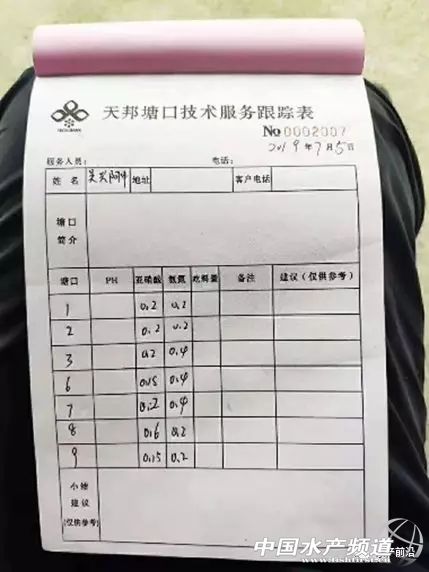 天邦塘口技术服务跟踪表
No 0002007
2019年7月5日
服务人员： 电话：
姓名 地址 客户电话
塘口简介
塘口 PH 亚硝酸 氨氮 吃料量 备注 建议（仅供参考）
1 0.2 0.2
2 0.2 0.2
3 0.2 0.4
6 0.15 0.4
7 0.2 0.4
8 0.6 0.2
9 0.15 0.2
小结
建议
(仅供参考)
中国水产频道
www.fishfirst.cn